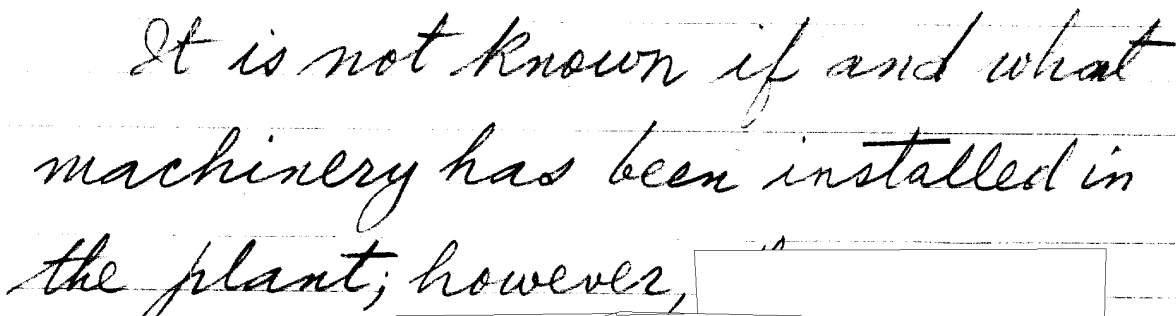 It is not known if and what
machinery has been installed in
the plant; however,